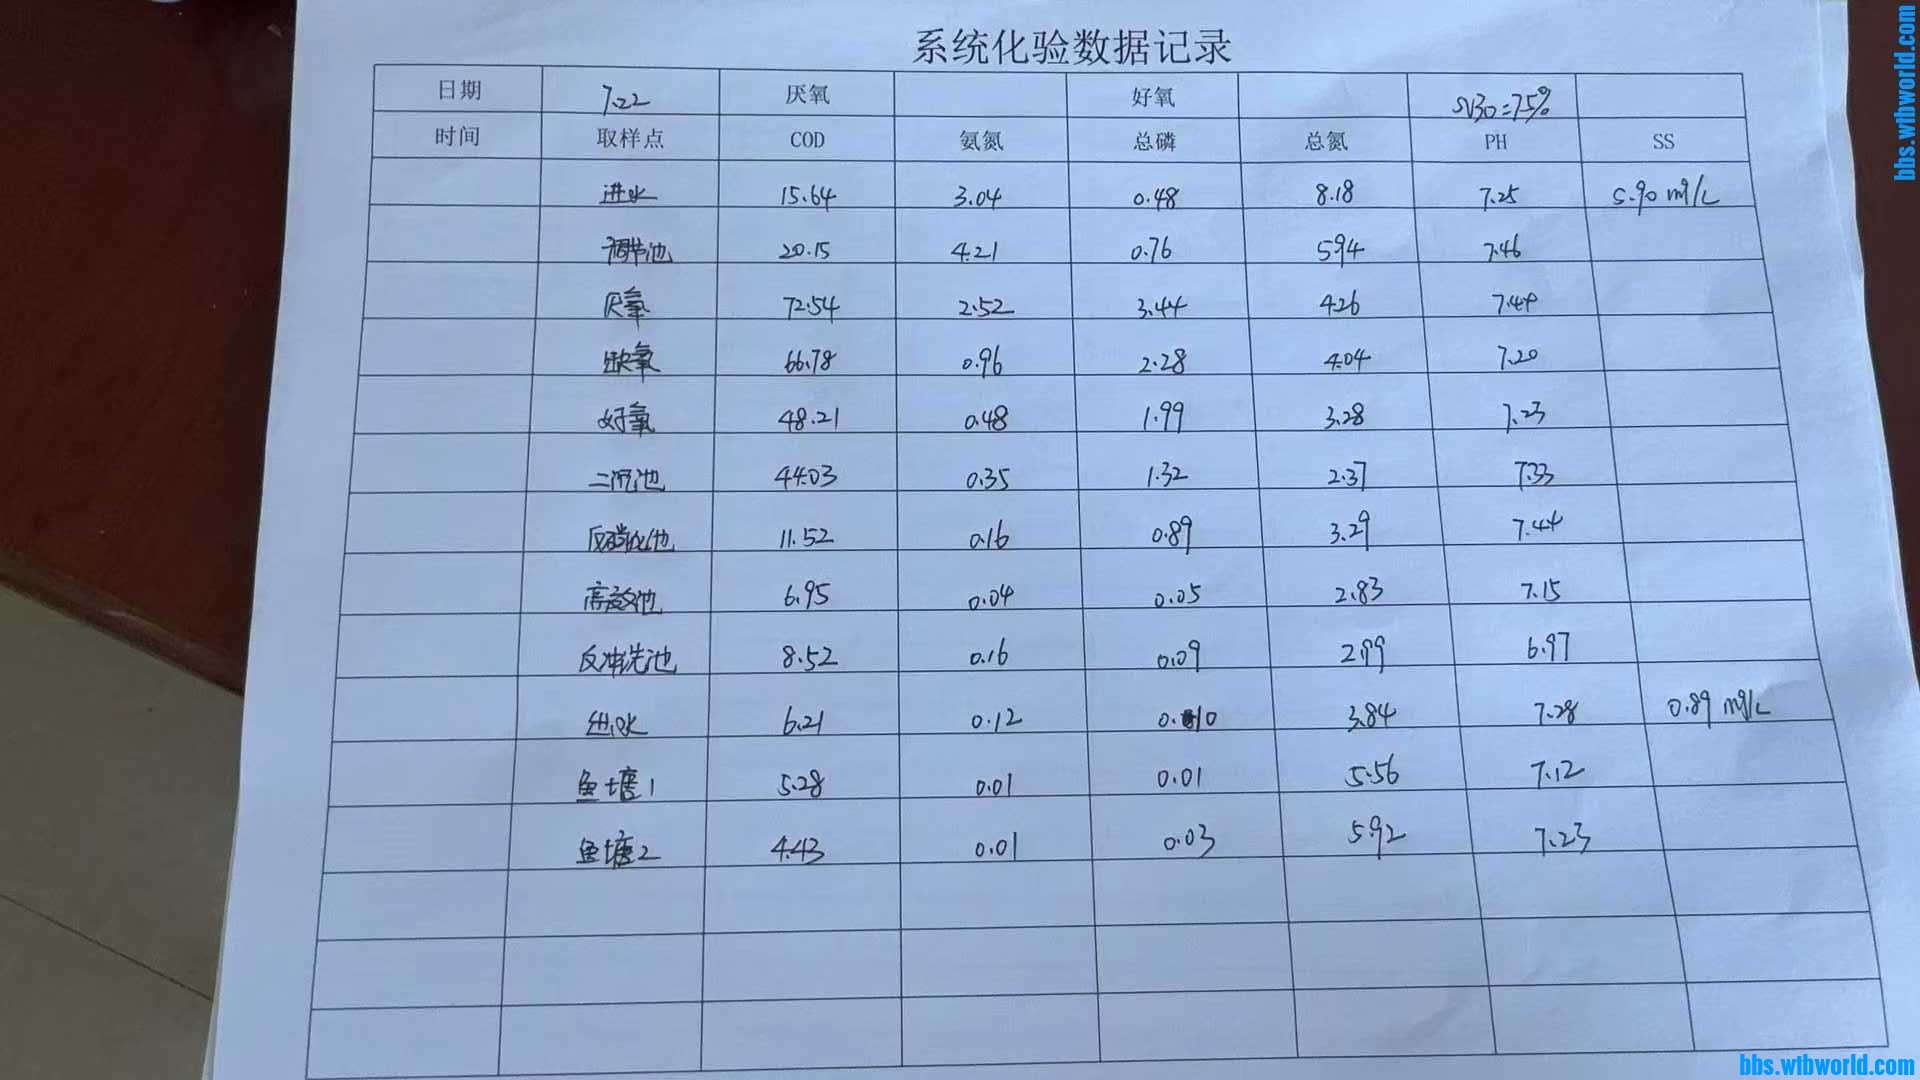 系统化验数据记录
日期 7.22 厌氧 好氧 SV30=75%
时间 取样点 COD 氨氮 总磷 总氮 PH SS
进水 15.64 3.04 0.48 8.18 7.25 5.90 mg/L
调节池 20.15 4.21 0.76 5.94 7.46
厌氧 72.54 2.52 3.44 4.26 7.44
缺氧 66.78 0.96 2.28 4.04 7.20
好氧 48.21 0.48 1.99 3.28 7.23
二沉池 44.03 0.35 1.32 2.37 7.33
反硝化池 11.52 0.16 0.89 3.29 7.44
高效池 6.95 0.04 0.05 2.83 7.15
反冲洗池 8.52 0.16 0.09 2.99 6.97
6.21 0.12 3.84 7.28 0.89 mg/L
鱼塘1 5.28 0.01 0.01 5.56 7.12
鱼塘2 4.43 0.01 0.03 5.92 7.23
bbs.wtbworld.com
bbs.wtbworld.com